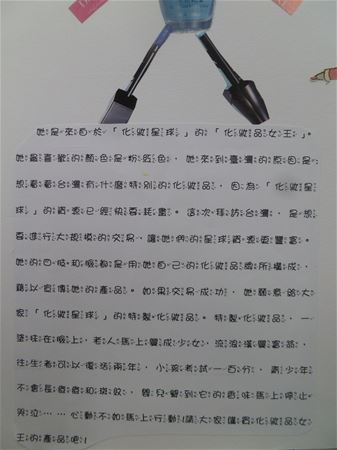 她是來自於「化妝星球」的「化妝品女王」。
她最喜歡的顏色是粉紅色，她來到臺灣的原因是
想看看台灣有什麼特別的化妝品，因為「化妝星
球」的資源已經快要耗盡。這次拜訪台灣，是想
要進行大規模的交易，讓她們的星球資源更豐富。
她的四肢和臉都是用她自己的化妝品牌所構成，
藉以宣傳她的產品。如果交易成功，她願意給大
家「化妝星球」的特製化妝品。特製化妝品，一
塗抹在臉上，老人馬上變成少女，流浪漢變富翁，
往生者可以復活兩年，小孩考試一百分，青少年
不會長痘痘和斑紋，嬰兒聞到它的香味馬上停止
哭泣……心動不如馬上行動!請大家購買化妝品女
王的產品吧!